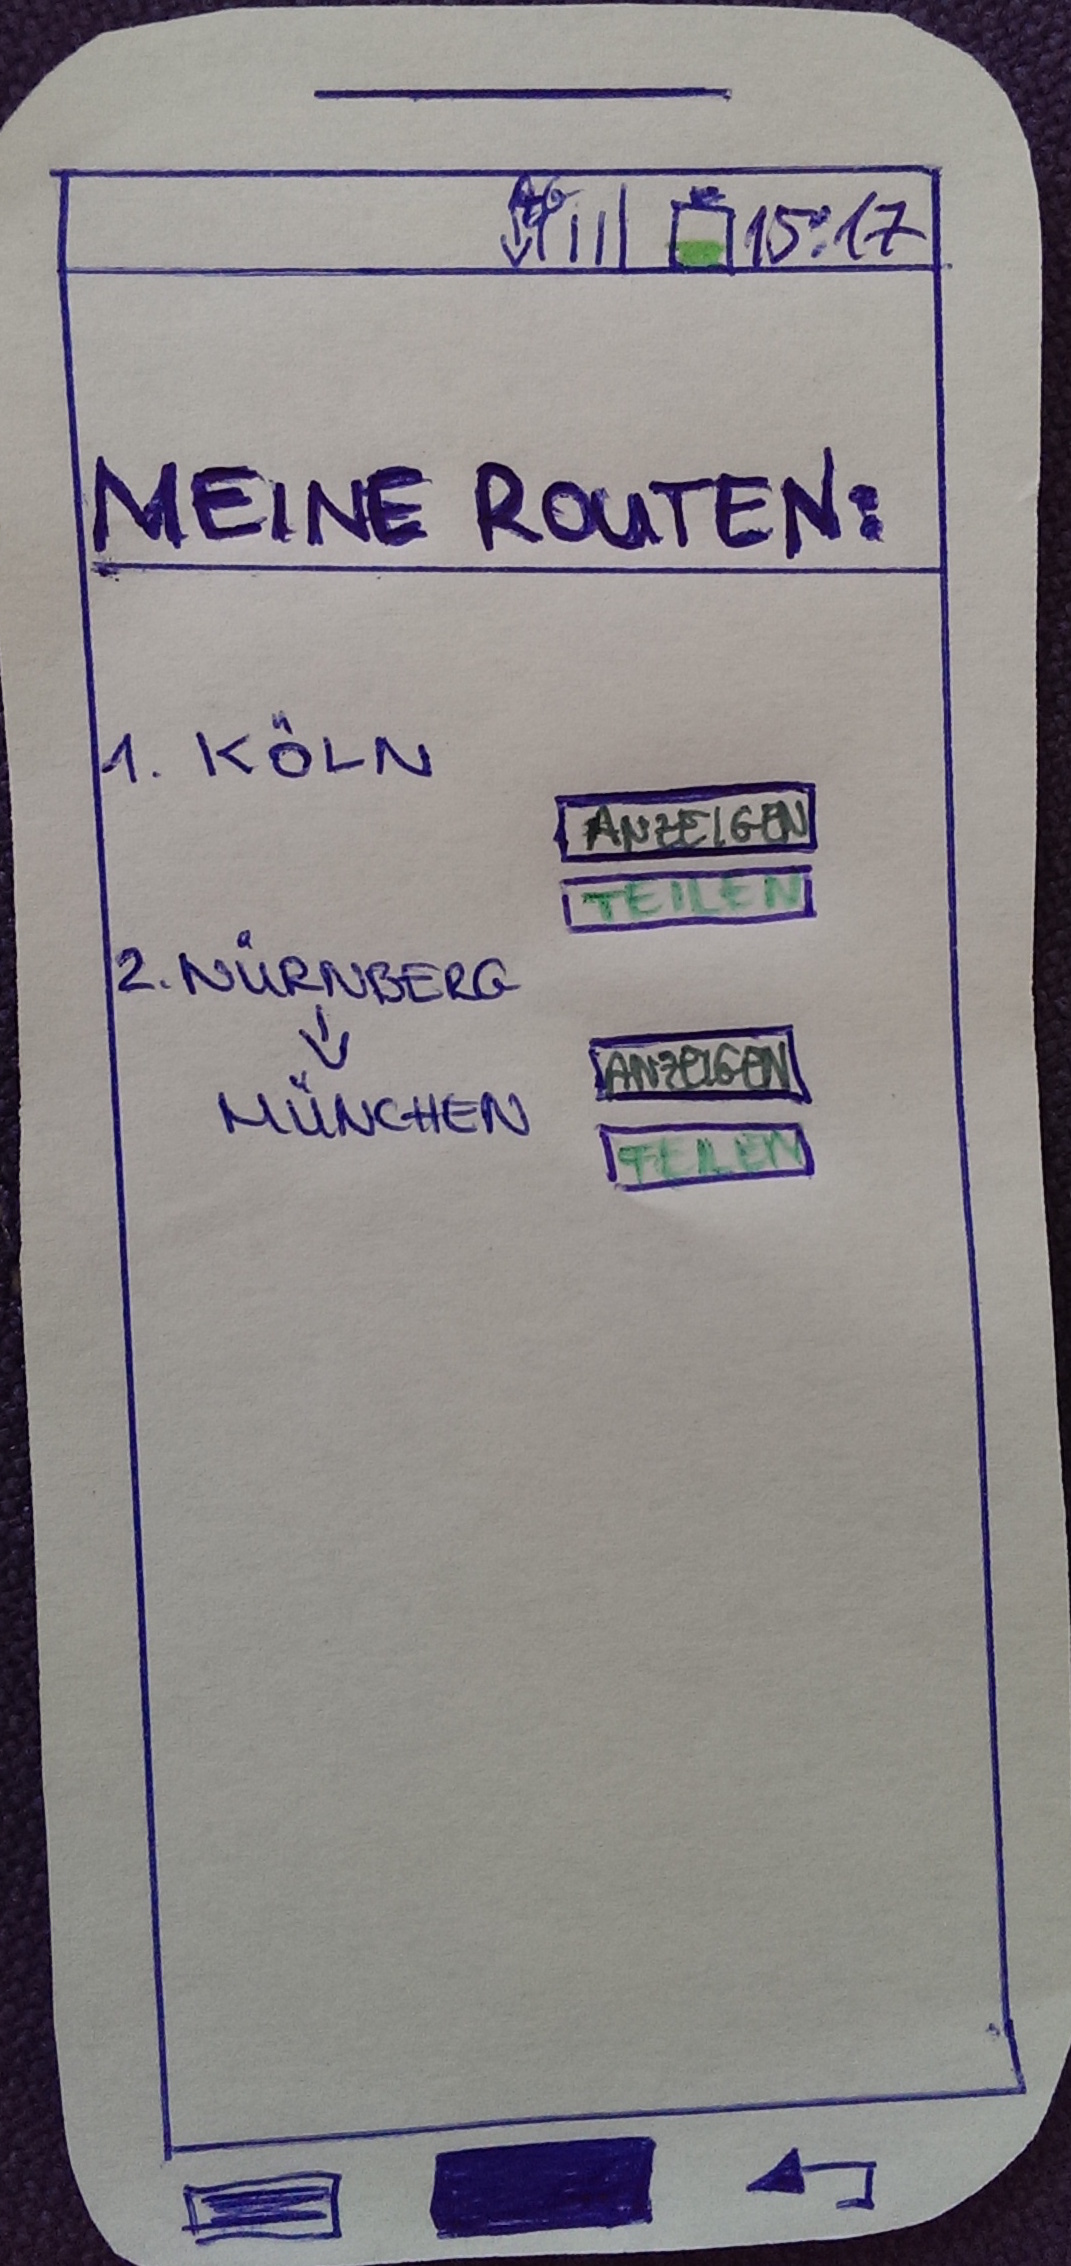 15:17
MEINE ROUTEN:
1. KÖLN
ANZEIGEN
TEILEN
2. NÜRNBERG
↓
MÜNCHEN
ANZEIGEN
TEILEN